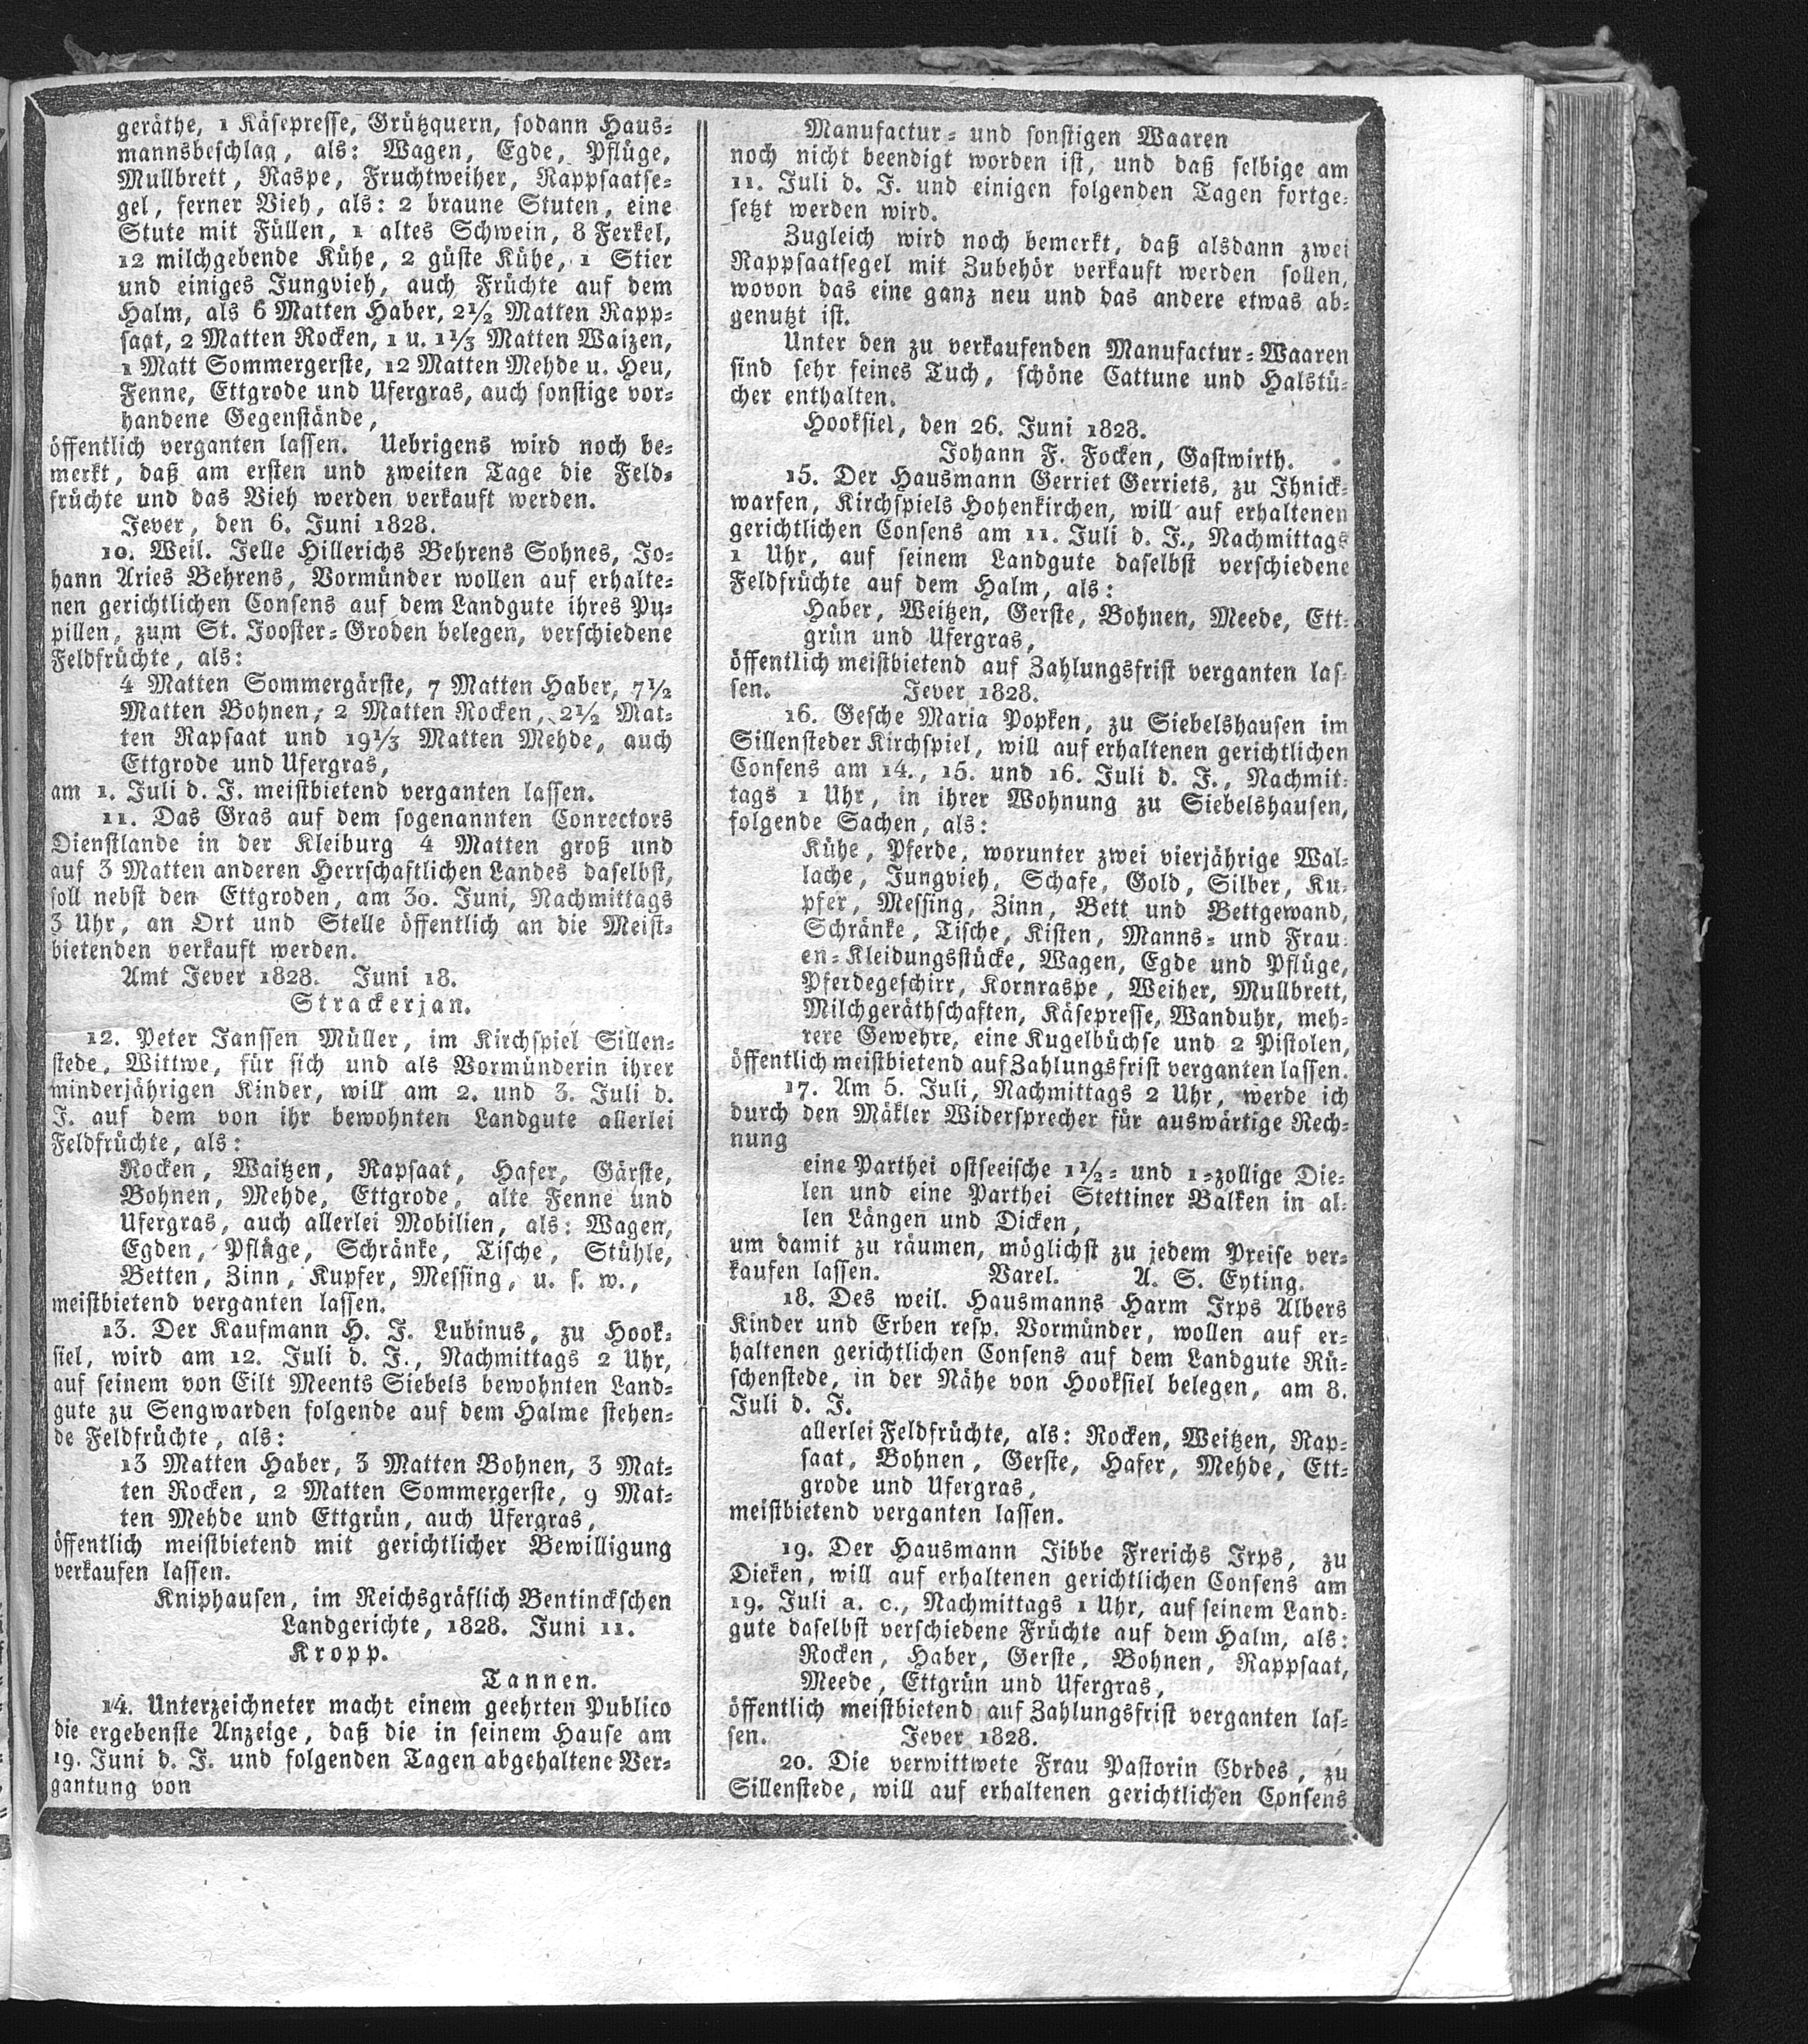 geräthe, 1 Käsepresse, Grützquern, sodann Haus-
mannsbeschlag, als: Wagen, Egde, Pflüge,
Mullbrett, Raspe, Fruchtweiher, Rappsaatse-
gel, ferner Vieh, als: 2 braune Stuten, eine
Stute mit Füllen, 1 altes Schwein, 8 Ferkel,
12 milchgebende Kühe, 2 güste Kühe, 1 Stier
und einiges Jungvieh, auch Früchte auf dem
Halm, als 6 Matten Haber, 2½ Matten Rapp-
saat, 2 Matten Rocken, 1 u. 1⅓ Matten Waizen,
1 Matt Sommergerste, 12 Matten Mehde u. Heu,
Fenne, Ettgrode und Ufergras, auch sonstige vor-
handene Gegenstände,
öffentlich verganten lassen. Uebrigens wird noch be-
merkt, daß am ersten und zweiten Tage die Feld-
früchte und das Vieh werden verkauft werden.
Jever, den 6. Juni 1828.
10. Weil. Jelle Hillerichs Behrens Sohnes, Jo-
hann Aries Behrens, Vormünder wollen auf erhalte-
nen gerichtlichen Consens auf dem Landgute ihres Pu-
pillen, zum St. Jooster-Groden belegen, verschiedene
Feldfrüchte, als:
4 Matten Sommergärste, 7 Matten Haber, 7½
Matten Bohnen, 2 Matten Rocken, 2½ Mat-
ten Rapsaat und 19⅓ Matten Mehde, auch
Ettgrode und Ufergras,
am 1. Juli d. J. meistbietend verganten lassen.
11. Das Gras auf dem sogenannten Conrectors
Dienstlande in der Kleiburg 4 Matten groß und
auf 3 Matten anderen Herrschaftlichen Landes daselbst,
soll nebst den Ettgroden, am 30. Juni, Nachmittags
3 Uhr, an Ort und Stelle öffentlich an die Meist-
bietenden verkauft werden.
Amt Jever 1828. Juni 18.
Strackerjan.
12. Peter Janssen Müller, im Kirchspiel Sillen-
stede, Wittwe, für sich und als Vormünderin ihrer
minderjährigen Kinder, will am 2. und 3. Juli d.
J. auf dem von ihr bewohnten Landgute allerlei
Feldfrüchte, als:
Rocken, Waitzen, Rapsaat, Hafer, Gärste,
Bohnen, Mehde, Ettgrode, alte Fenne und
Ufergras, auch allerlei Mobilien, als: Wagen,
Egden, Pflüge, Schränke, Tische, Stühle,
Betten, Zinn, Kupfer, Messing, u. s. w.,
meistbietend verganten lassen.
13. Der Kaufmann H. J. Lubinus, zu Hook-
siel, wird am 12. Juli d. J., Nachmittags 2 Uhr,
auf seinem von Eilt Meents Siebels bewohnten Land-
gute zu Sengwarden folgende auf dem Halme stehen-
de Feldfrüchte, als:
13 Matten Haber, 3 Matten Bohnen, 3 Mat-
ten Rocken, 2 Matten Sommergerste, 9 Mat-
ten Mehde und Ettgrün, auch Ufergras,
öffentlich meistbietend mit gerichtlicher Bewilligung
verkaufen lassen.
Kniphausen, im Reichsgräflich Bentinckschen
Landgerichte, 1828. Juni 11.
Kropp.
Tannen.
14. Unterzeichneter macht einem geehrten Publico
die ergebenste Anzeige, daß die in seinem Hause am
19. Juni d. J. und folgenden Tagen abgehaltene Ver-
gantung von
Manufactur- und sonstigen Waaren
noch nicht beendigt worden ist, und daß selbige am
11. Juli d. J. und einigen folgenden Tagen fortge-
setzt werden wird.
Zugleich wird noch bemerkt, daß alsdann zwei
Rappsaatsegel mit Zubehör verkauft werden sollen,
wovon das eine ganz neu und das andere etwas ab-
genutzt ist.
Unter den zu verkaufenden Manufactur-Waaren
sind sehr feines Tuch, schöne Cattune und Halstü-
cher enthalten.
Hooksiel, den 26. Juni 1828.
Johann F. Focken, Gastwirth.
15. Der Hausmann Gerriet Gerriets, zu Ihnick-
warfen, Kirchspiels Hohenkirchen, will auf erhaltenen
gerichtlichen Consens am 11. Juli d. J., Nachmittags
1 Uhr, auf seinem Landgute daselbst verschiedene
Feldfrüchte auf dem Halm, als:
Haber, Weitzen, Gerste, Bohnen, Meede, Ett-
grün und Ufergras,
öffentlich meistbietend auf Zahlungsfrist verganten las-
sen. Jever 1828.
16. Gesche Maria Popken, zu Siebelshausen im
Sillensteder Kirchspiel, will auf erhaltenen gerichtlichen
Consens am 14., 15. und 16. Juli d. J., Nachmit-
tags 1 Uhr, in ihrer Wohnung zu Siebelshausen,
folgende Sachen, als:
Kühe, Pferde, worunter zwei vierjährige Wal-
lache, Jungvieh, Schafe, Gold, Silber, Ku-
pfer, Messing, Zinn, Bett und Bettgewand,
Schränke, Tische, Kisten, Manns- und Frau-
en-Kleidungsstücke, Wagen, Egde und Pflüge,
Pferdegeschirr, Kornraspe, Weiher, Mullbrett,
Milchgeräthschaften, Käsepresse, Wanduhr, meh-
rere Gewehre, eine Kugelbüchse und 2 Pistolen,
öffentlich meistbietend auf Zahlungsfrist verganten lassen.
17. Am 5. Juli, Nachmittags 2 Uhr, werde ich
durch den Mäkler Widersprecher für auswärtige Rech-
nung
eine Parthei ostseeische 1½- und 1-zollige Die-
len und eine Parthei Stettiner Balken in al-
len Längen und Dicken,
um damit zu räumen, möglichst zu jedem Preise ver-
kaufen lassen. Varel. A. S. Eyting.
18. Des weil. Hausmanns Harm Irps Albers
Kinder und Erben resp. Vormünder, wollen auf er-
haltenen gerichtlichen Consens auf dem Landgute Rü-
schenstede, in der Nähe von Hooksiel belegen, am 8.
Juli d. J.
allerlei Feldfrüchte, als: Rocken, Weitzen, Rap-
saat, Bohnen, Gerste, Hafer, Mehde, Ett-
grode und Ufergras,
meistbietend verganten lassen.
19. Der Hausmann Jibbe Frerichs Irps, zu
Dieken, will auf erhaltenen gerichtlichen Consens am
19. Juli a. c., Nachmittags 1 Uhr, auf seinem Land-
gute daselbst verschiedene Früchte auf dem Halm, als:
Rocken, Haber, Gerste, Bohnen, Rappsaat,
Meede, Ettgrün und Ufergras,
öffentlich meistbietend auf Zahlungsfrist verganten las-
sen. Jever 1828.
20. Die verwittwete Frau Pastorin Cordes, zu
Sillenstede, will auf erhaltenen gerichtlichen Consens